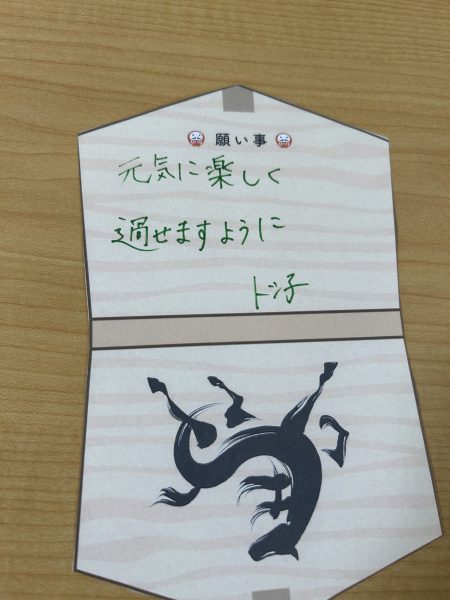 願い事
元気に楽しく
過せますように
トシ子